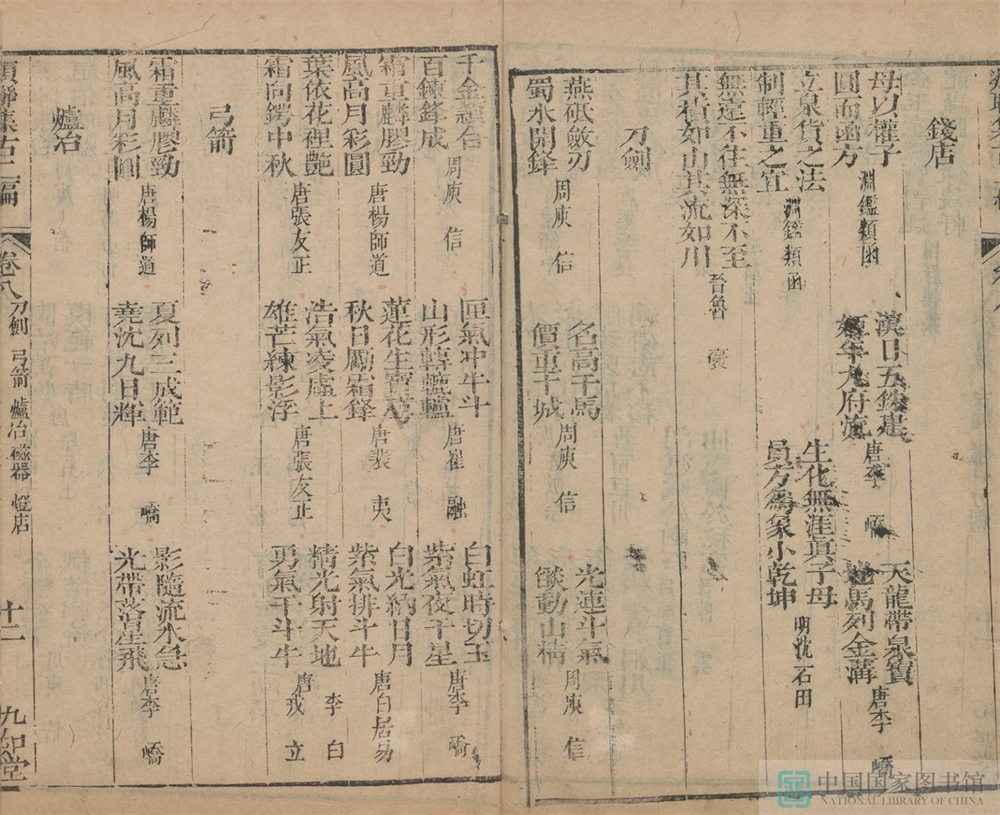 錢店
母以權子
圓而函方
淵鑑類函
漢日五銖建
姬年九府流
唐李嶠
天龍帶泉寶
地馬列金溝
唐李嶠
立泉貨之法
制輕重之宜
淵鑑類函
生化無涯真子母
員方為象小乾坤
明沈石田
無遠不往無深不至
其積如山其流如川
晉魯褒
刀劍
燕砥斂刃
蜀水開鋒
周庾信
名高千馬
價重千城
周庾信
光連斗氣
燄動山精
周庾信
千金
百鍊鋒成
周庾信
匣氣冲牛斗
山形轉轆轤
唐崔融
白虹時切玉
紫氣夜干星
唐李嶠
霜重麟膠勁
風高月彩圓
唐楊師道
蓮花生寶萼
秋日勵霜鋒
唐裴夷
白光納日月
紫氣排斗牛
唐白居易
葉依花裡艷
霜向鍔中秋
唐張友正
浩氣凌虛上
雄芒練影浮
唐張友正
精光射天地
李白
勇氣干斗牛
唐戎立
弓箭
霜重麟膠勁
風高月彩圓
唐楊師道
夏列三成範
堯沈九日輝
唐李嶠
影隨流水急
光帶落星飛
唐李嶠
爐冶
類聯集古二編 卷八 刀劍 弓箭 爐冶 磁器 燈店 十二 九如堂
中国国家图书馆
NATIONAL LIBRARY OF CHINA